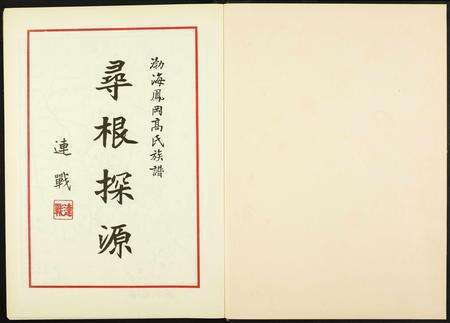 渤海鳳岡高氏族譜
尋根探源
連戰